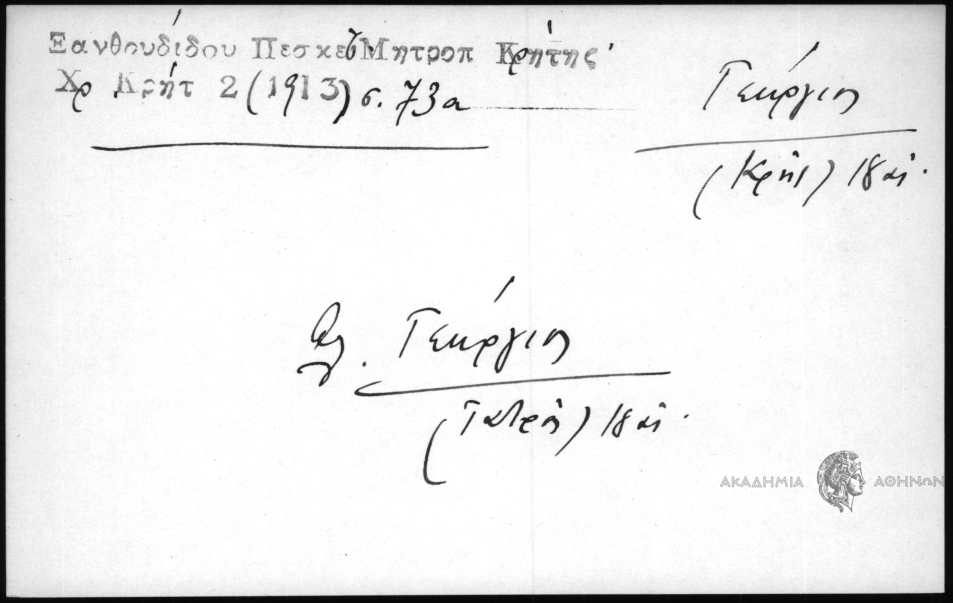 Ξανθουδίδου Πεσκέσ Μητροπ Κρήτης
Χρ Κρήτ 2 (1913) σ. 73α
Γεώργιος
(Κρής) 18 αἰ.
βλ. Γεώργιος
(Ἰατρός) 18 αἰ.
ΑΚΑΔΗΜΙΑ ΑΘΗΝΩΝ